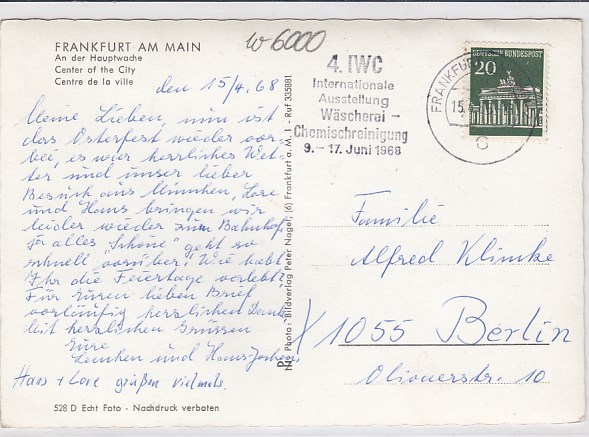 FRANKFURT AM MAIN
An der Hauptwache
Center of the City
Centre de la ville
w 6000
4. IWC
Internationale
Ausstellung
Wäscherei -
Chemischreinigung
9. - 17. Juni 1968
DEUTSCHE BUNDESPOST
20
FRANKFURT
15.
c
den 15/4. 68
Meine Lieben, nun ist
das Osterfest wieder vor-
bei, es war herrliches Wet-
ter und unser lieber
Besuch aus München, Lore
und Hans bringen wir
leider wieder zum Bahnhof,
ja alles "Schöne" geht so
schnell vorüber! Wie habt
Ihr die Feiertage verlebt?
Für Euren lieben Brief
vorläufig herzlichen Dank
Mit herzlichen Grüssen
Eure
und Hans-Joachim
Hans + Lore grüßen vielmals.
Photo: Bildverlag Peter Nagel, (6) Frankfurt a. M. 1 - Ruf 335881
Familie
Alfred Klimke
1055 Berlin
Olivaerstr. 10
528 D Echt Foto - Nachdruck verboten